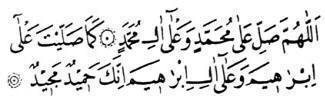 اَللّٰهُمَّ صَلِّ عَلٰى مُحَمَّدٍ وَّعَلٰٓى اٰلِ مُحَمَّدٍ كَمَا صَلَّيْتَ عَلٰٓى
اِبْرٰهِيْمَ وَعَلٰٓى اٰلِ اِبْرٰهِيْمَ اِنَّكَ حَمِيْدٌ مَّجِيْدٌ